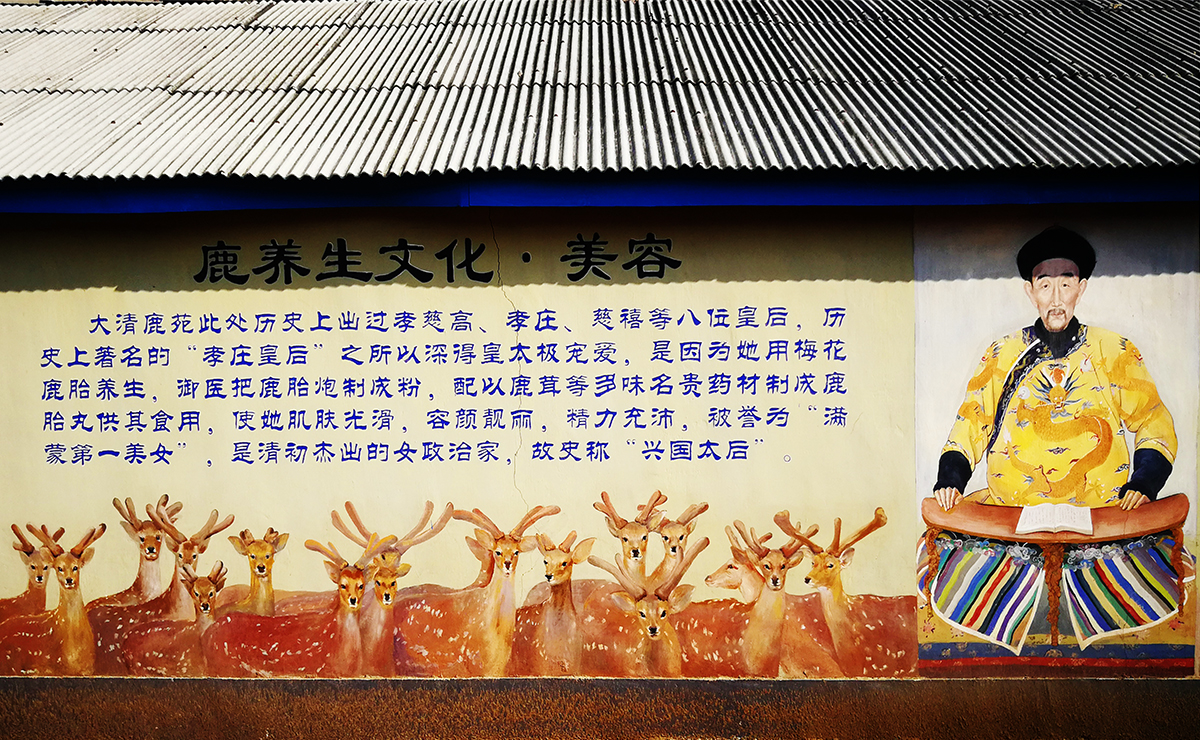 鹿养生文化·美容
大清鹿苑此处历史上出过孝慈高、孝庄、慈禧等八位皇后，历
史上著名的“孝庄皇后”之所以深得皇太极宠爱，是因为她用梅花
鹿胎养生，御医把鹿胎炮制成粉，配以鹿茸等多味名贵药材制成鹿
胎丸供其食用，使她肌肤光滑，容颜靓丽，精力充沛，被誉为“满
蒙第一美女”，是清初杰出的女政治家，故史称“兴国太后”。